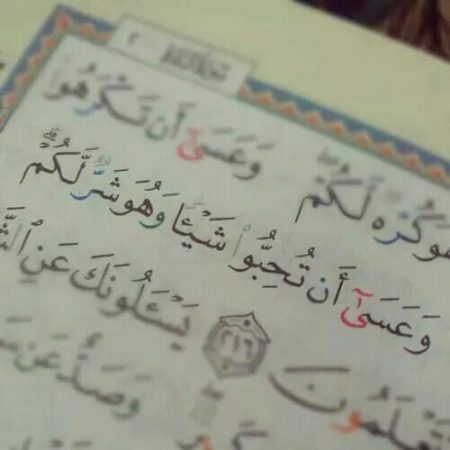 ٢
هُوَ كُرْهٌ لَّكُمْ ۖ وَعَسَىٰٓ أَن تَكْرَهُوا
وَعَسَىٰٓ أَن تُحِبُّوا۟ شَيْـًٔا وَهُوَ شَرٌّ لَّكُمْ ۗ
تَعْلَمُونَ ٢١٦ يَسْـَٔلُونَكَ عَنِ
وَصَدٌّ عَن